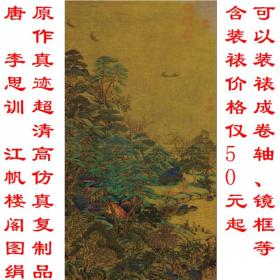 可以装裱成卷轴、镜框等
含装裱价格仅50元起
原作真迹超清高仿真复制品
唐 李思训 江帆楼阁图绢